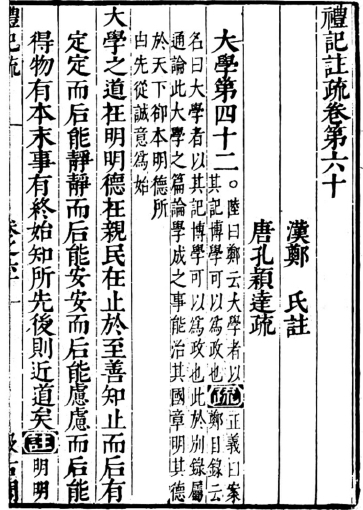 禮記註疏卷第六十
漢鄭 氏註
唐孔穎達疏
大學第四十二。陸曰鄭云大學者以其記博學可以爲政也疏正義曰案鄭目錄云
名曰大學者以其記博學可以爲政也此於別錄屬
通論此大學之篇論學成之事能治其國章明其德
於天下卻本明德所
由先從誠意爲始
大學之道在明明德在親民在止於至善知止而后有
定定而后能靜靜而后能安安而后能慮慮而后能
得物有本末事有終始知所先後則近道矣註明明
禮記疏